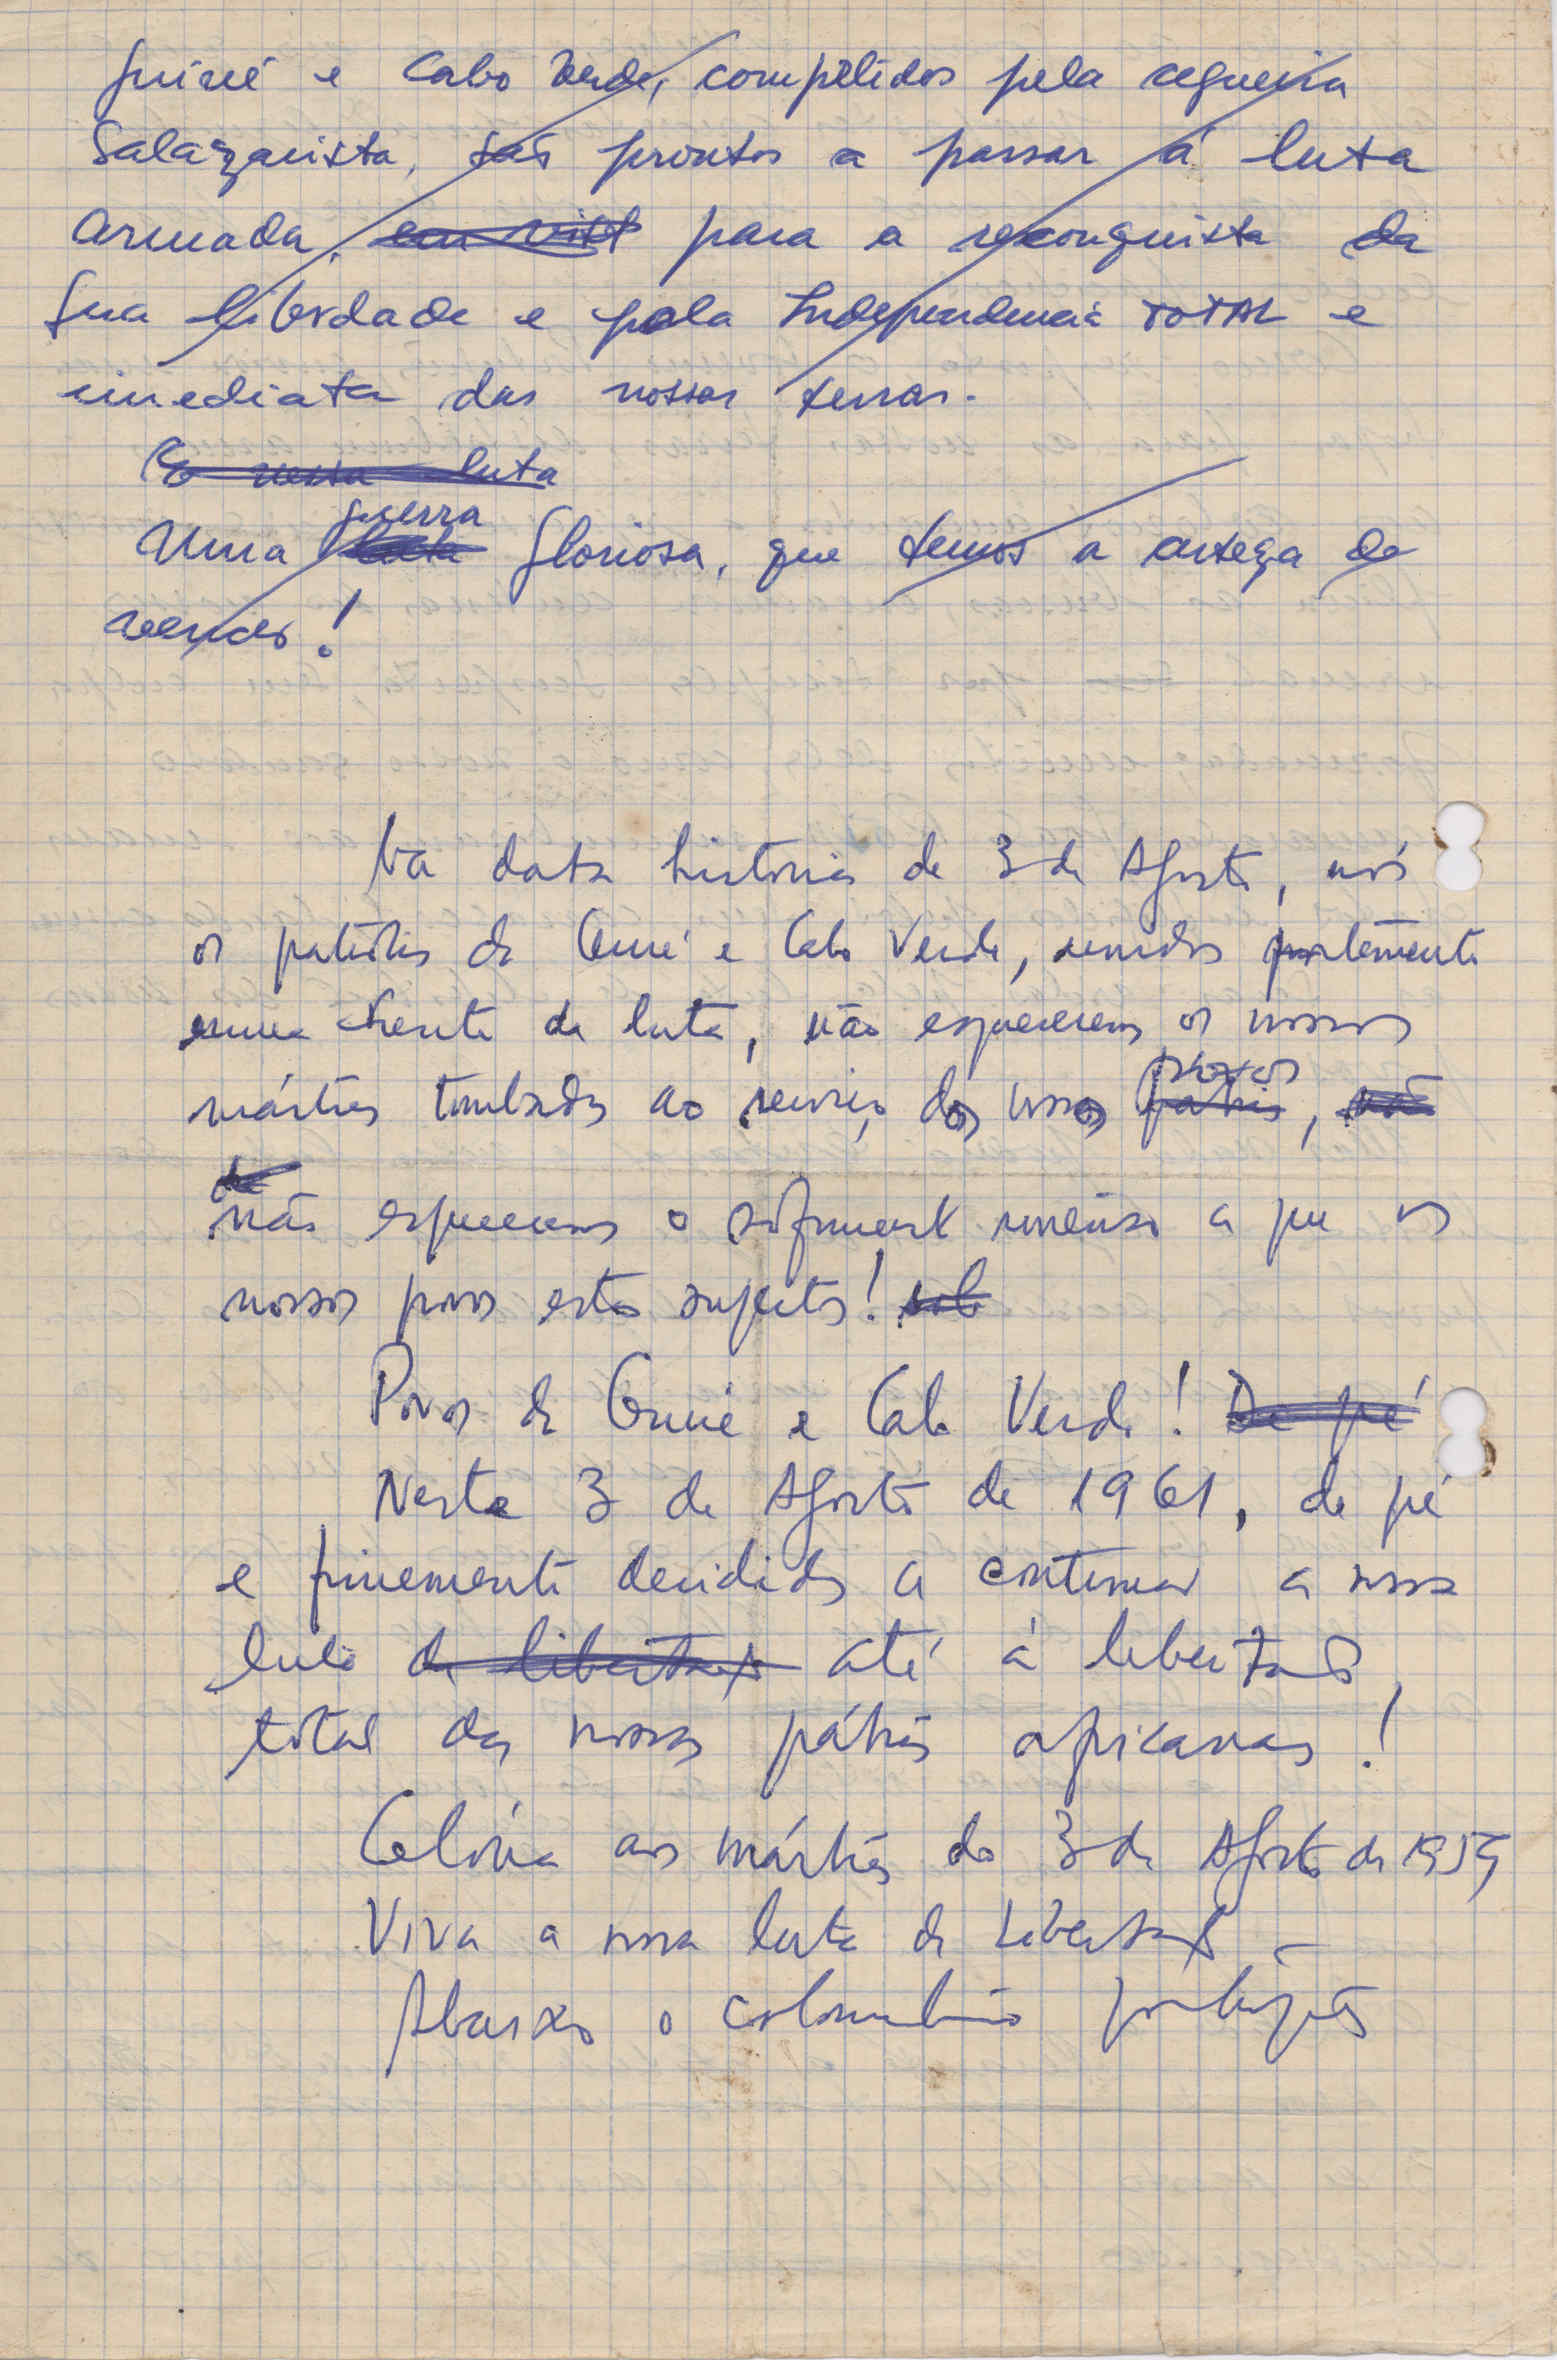 Guiné e Cabo Verde, compelidos pela cegueira
Salazarista, são prontos a passar á luta
armada, para a reconquista da
sua liberdade e pela Independencia TOTAL e
imediata das nossas terras.
E nossa luta
guerra
Uma luta gloriosa, que temos a certeza de
vencer!
Na data historia de 3 de Agosto, nós
os patriotas da Guiné e Cabo Verde, unidos fortemente
numa frente de luta, não esquecemos os nossos
povos
mártires tombados ao serviço dos nossos pátrias, não
de
não esquecemos o sofrimento imenso a que os
nossos povos estão sujeitos! sob
Povos da Guiné e Cabo Verde! De pé
Neste 3 de Agosto de 1961, de pé
e firmemente decididos a continuar a nossa
luta de libertação até à libertação
total das nossas pátrias africanas!
Glória aos mártires do 3 de Agosto de 1959
Viva a nossa luta de Libertação –
Abaixo o colonialismo português